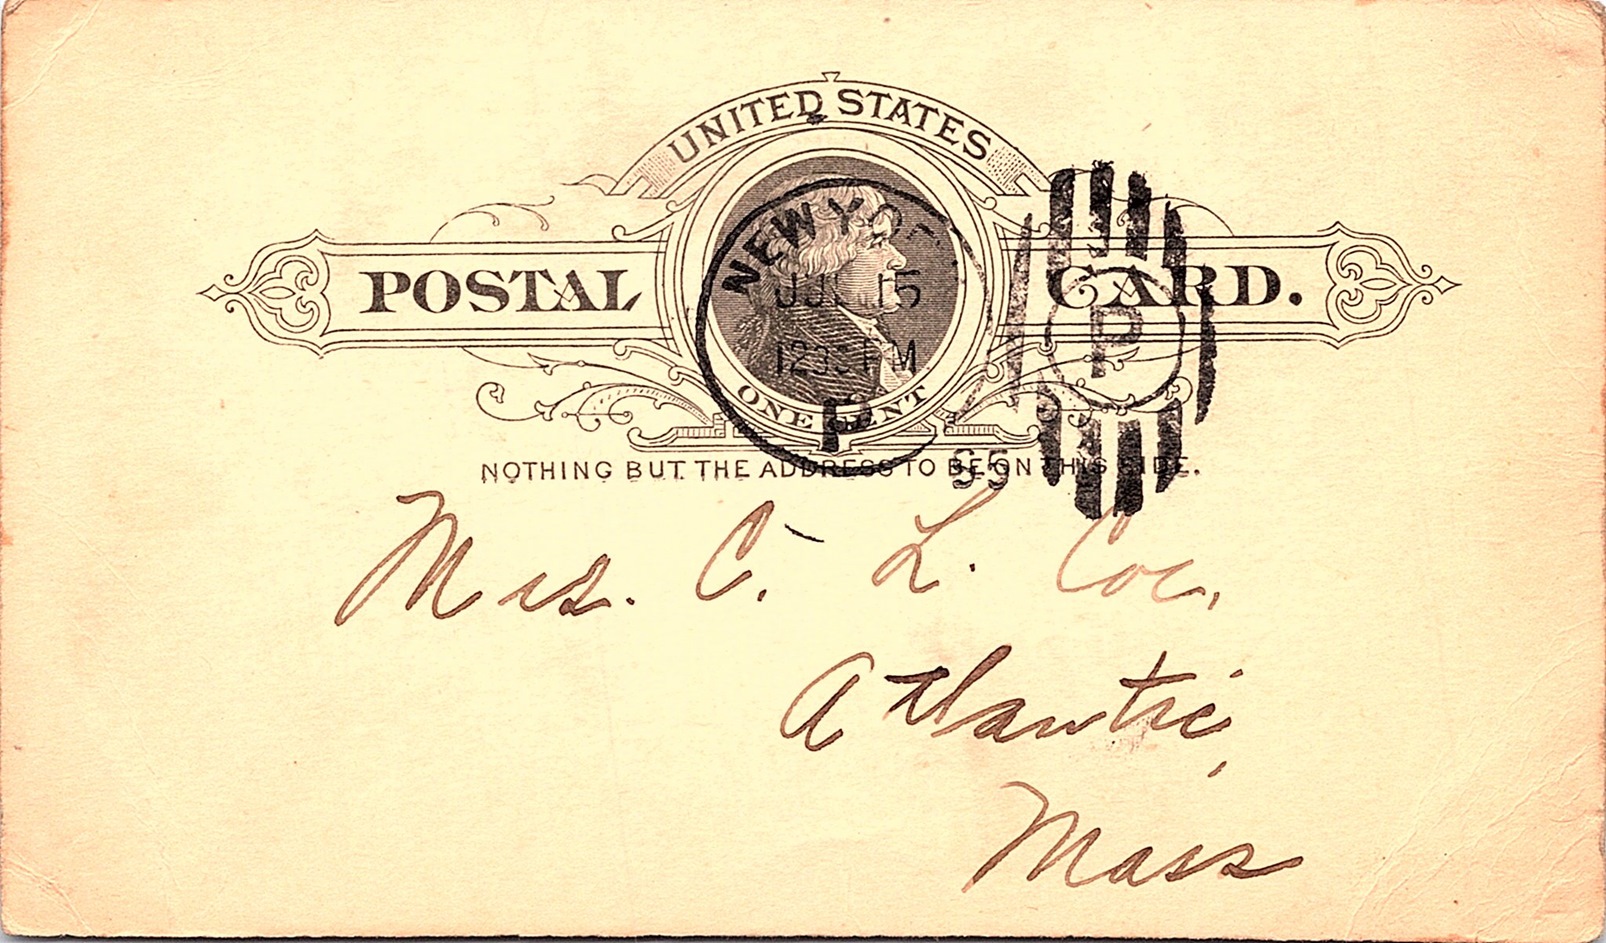 UNITED STATES
POSTAL CARD.
ONE CENT
NEW YORK
JUL 15
1230 PM
P
P
NOTHING BUT THE ADDRESS TO BE ON THIS SIDE.
Mrs. C. L. Coe,
Atlantic,
Mass